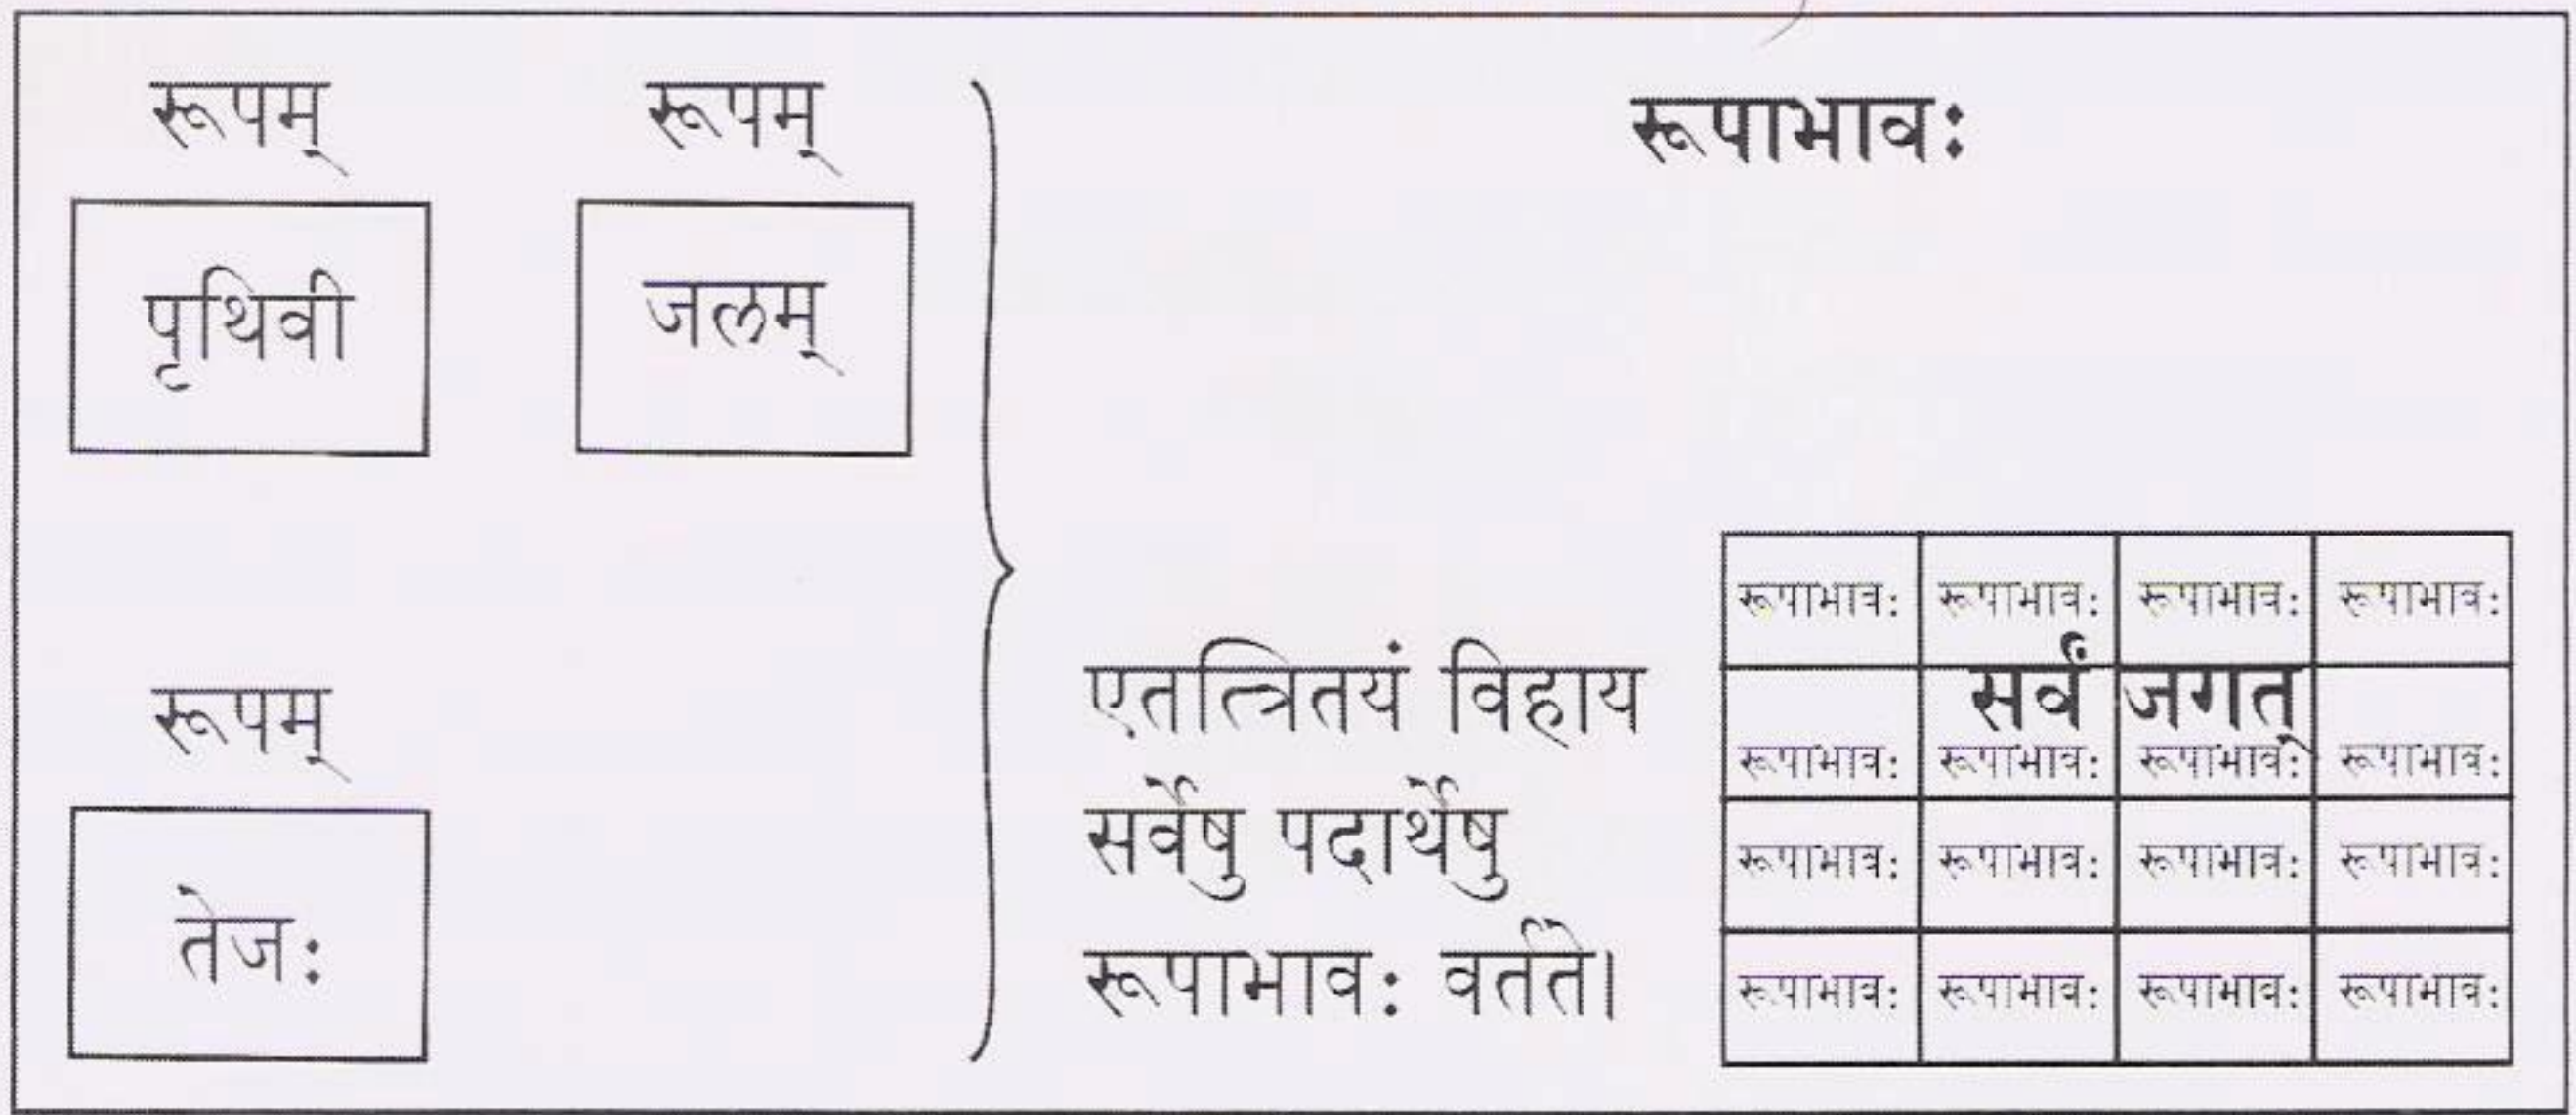 रूपम् रूपम्
पृथिवी जलम्
रूपम्
तेजः
रूपाभावः
एतत्त्रितयं विहाय
सर्वेषु पदार्थेषु
रूपाभावः वर्तते।
रूपाभावः रूपाभावः रूपाभावः रूपाभावः
सर्वं जगत्
रूपाभावः रूपाभावः रूपाभावः रूपाभावः
रूपाभावः रूपाभावः रूपाभावः रूपाभावः
रूपाभावः रूपाभावः रूपाभावः रूपाभावः